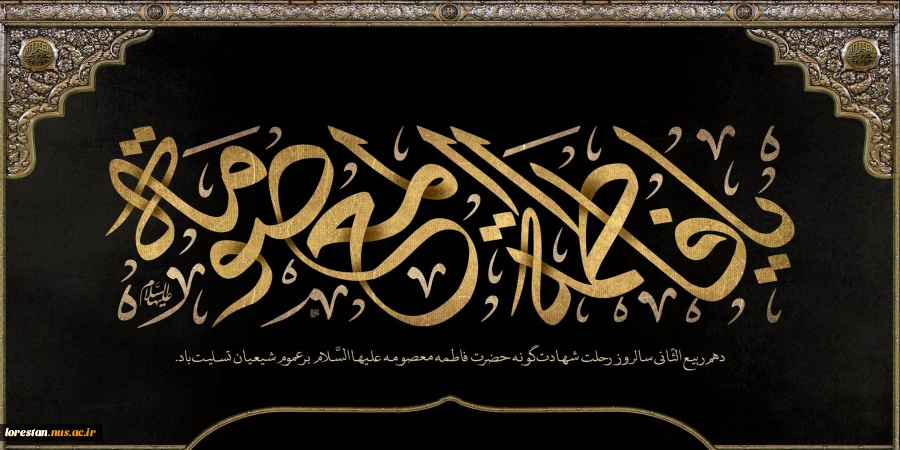 یا فاطمة المعصومة
علیها السلام
دهم ربیع الثّانی سالروز رحلت شهادت‌گونه حضرت فاطمه معصومه علیها السَّلام بر عموم شیعیان تسلیت باد.
lorestan.nus.ac.ir